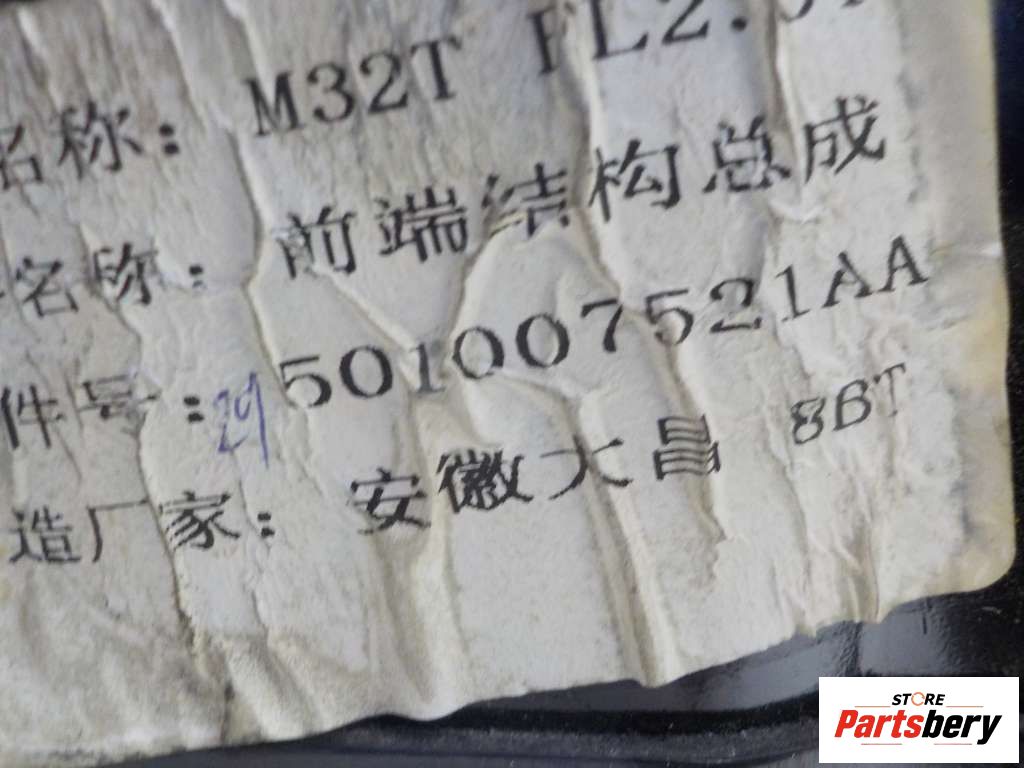 名称: M32T FL2.0T
名称: 前端结构总成
件号: 29 501007521AA
造厂家: 安徽大昌 8BT
STORE
Partsbery